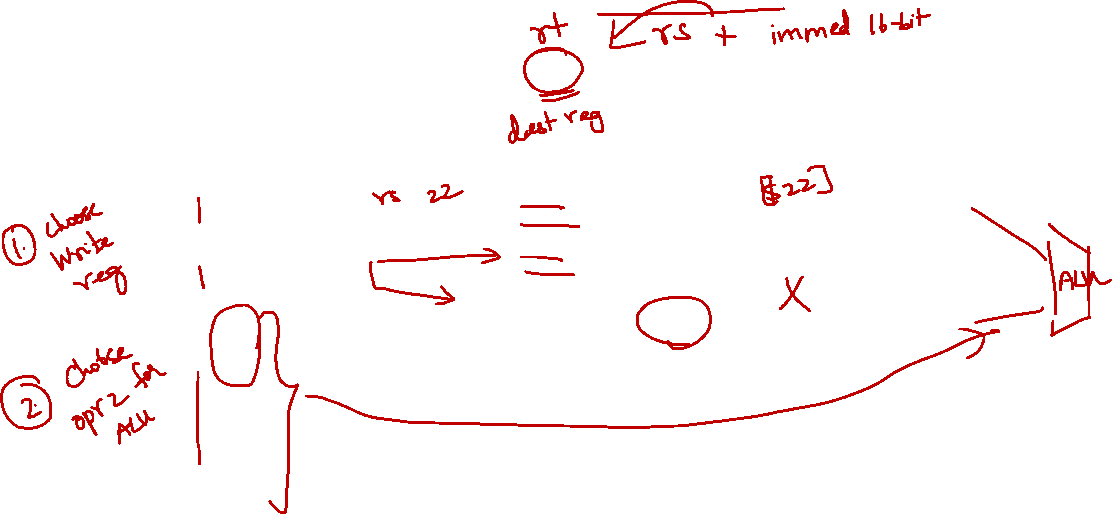 rt
rs + immed 16-bit
dest reg
rs 22
[$22]
1. choose
write
reg
X
ALU
2. choose
opr2 for
ALU